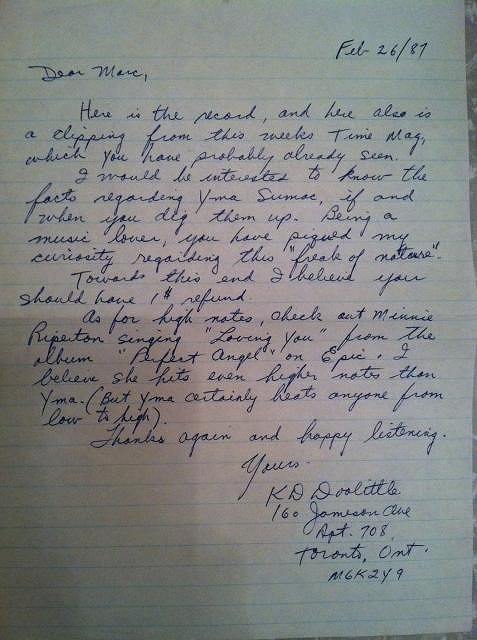 Feb 26/87
Dear Marc,
Here is the record, and here also is
a clipping from this weeks Time Mag,
which you have probably already seen.
I would be interested to know the
facts regarding Yma Sumac, if and
when you dig them up. Being a
music lover, you have piqued my
curiosity regarding this "freak of nature".
Towards this end I believe your
should have 1$ refund.
As for high notes, check out Minnie
Riperton singing "Loving You" from the
album "Perfect Angel" on Epic. I
believe she hits even higher notes than
Yma. (But Yma certainly beats anyone from
low to high).
Thanks again and happy listening.
Yours.
KD Doolittle
160 Jameson Ave
Apt. 708,
Toronto, Ont.
M6K2Y9